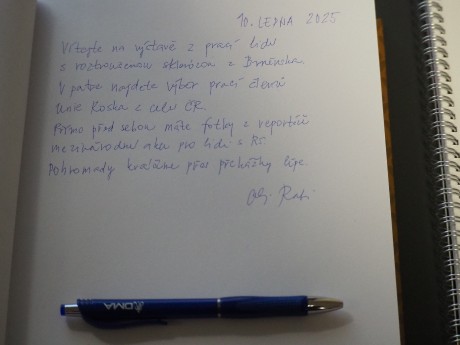 10. LEDNA 2025
Vítejte na výstavě z prací lidí
s roztroušenou sklerózou z Brněnska.
V patře najdete výbor prací členů
Unie Roska z celé ČR.
Přímo před sebou máte fotky z reportéří
mezinárodní akce pro lidi s RS.
Pohromady kráčíme přes překážky lépe
ROMA